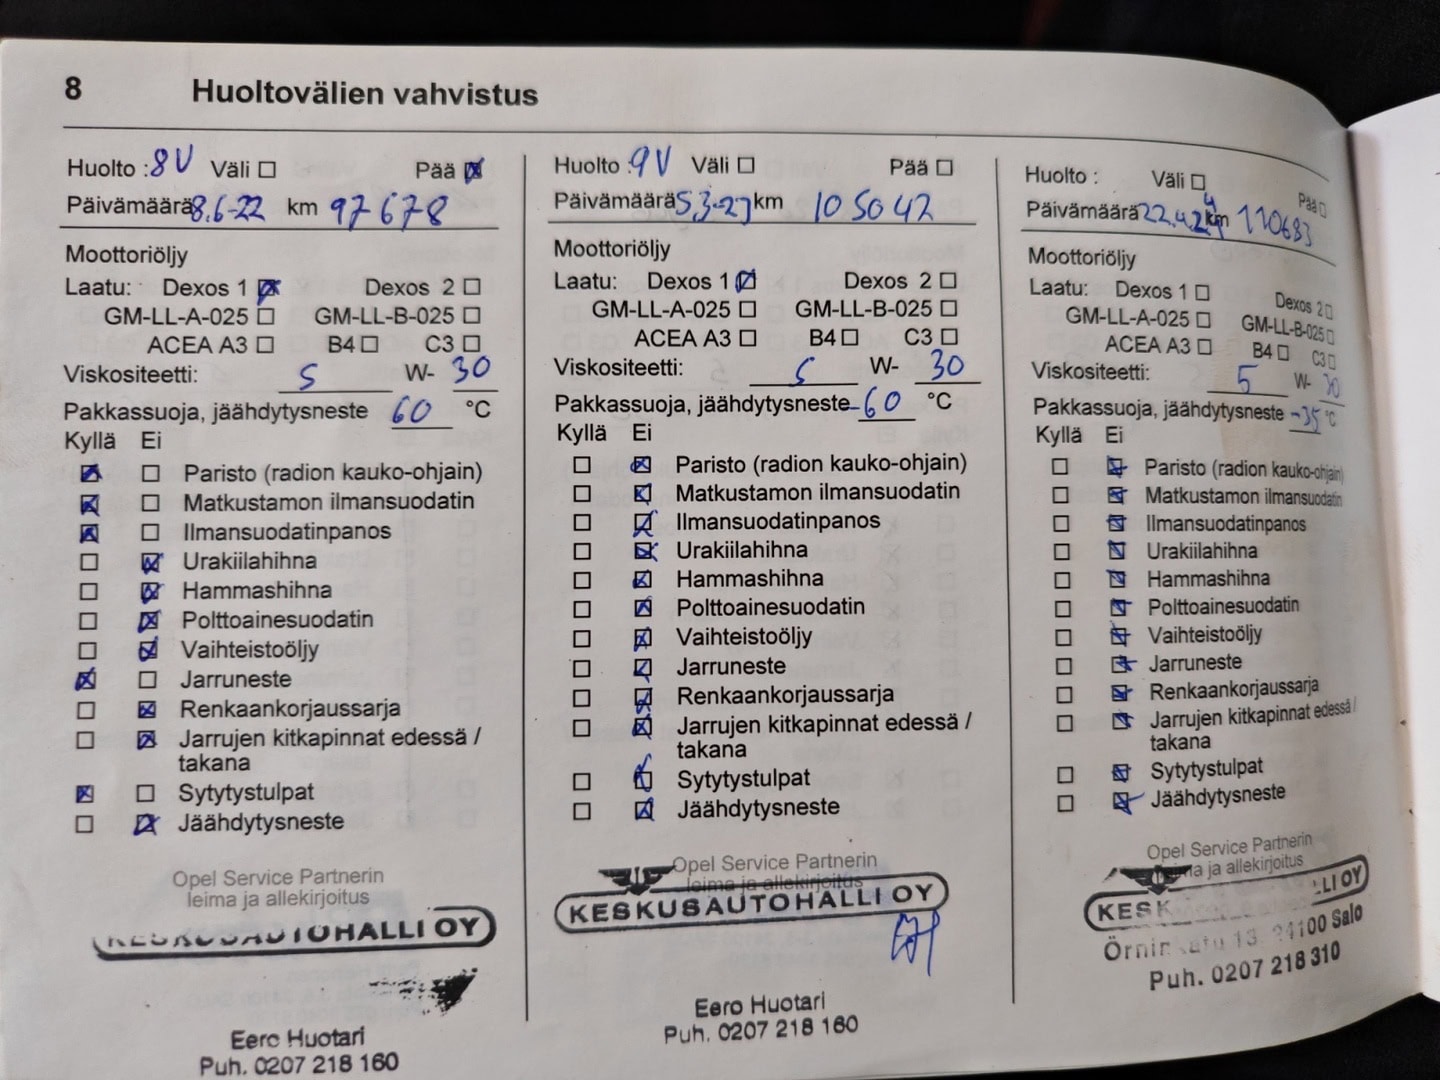 8 Huoltovälien vahvistus
Huolto : 8V Väli Pää
Päivämäärä 8.6-22 km 97678
Moottoriöljy
Laatu: Dexos 1 Dexos 2
GM-LL-A-025 GM-LL-B-025
ACEA A3 B4 C3
Viskositeetti: 5 W- 30
Pakkassuoja, jäähdytysneste 60 °C
Kyllä Ei
Paristo (radion kauko-ohjain)
Matkustamon ilmansuodatin
Ilmansuodatinpanos
Urakiilahihna
Hammashihna
Polttoainesuodatin
Vaihteistoöljy
Jarruneste
Renkaankorjaussarja
Jarrujen kitkapinnat edessä /
takana
Sytytystulpat
Jäähdytysneste
Opel Service Partnerin
leima ja allekirjoitus
KESKUSAUTOHALLI OY
Eero Huotari
Puh. 0207 218 160
Huolto : 9V Väli Pää
Päivämäärä 5.3-23 km 105042
Moottoriöljy
Laatu: Dexos 1 Dexos 2
GM-LL-A-025 GM-LL-B-025
ACEA A3 B4 C3
Viskositeetti: 5 W- 30
Pakkassuoja, jäähdytysneste -60 °C
Kyllä Ei
Paristo (radion kauko-ohjain)
Matkustamon ilmansuodatin
Ilmansuodatinpanos
Urakiilahihna
Hammashihna
Polttoainesuodatin
Vaihteistoöljy
Jarruneste
Renkaankorjaussarja
Jarrujen kitkapinnat edessä /
takana
Sytytystulpat
Jäähdytysneste
Opel Service Partnerin
leima ja allekirjoitus
KESKUSAUTOHALLI OY
Eero Huotari
Puh. 0207 218 160
Huolto : Väli Pää
Päivämäärä 22.4.24 km 110683
Moottoriöljy
Laatu: Dexos 1 Dexos 2
GM-LL-A-025 GM-LL-B-025
ACEA A3 B4 C3
Viskositeetti: 5 W- 30
Pakkassuoja, jäähdytysneste -35 °C
Kyllä Ei
Paristo (radion kauko-ohjain)
Matkustamon ilmansuodatin
Ilmansuodatinpanos
Urakiilahihna
Hammashihna
Polttoainesuodatin
Vaihteistoöljy
Jarruneste
Renkaankorjaussarja
Jarrujen kitkapinnat edessä /
takana
Sytytystulpat
Jäähdytysneste
Opel Service Partnerin
leima ja allekirjoitus
24100 Salo
Puh. 0207 218 310